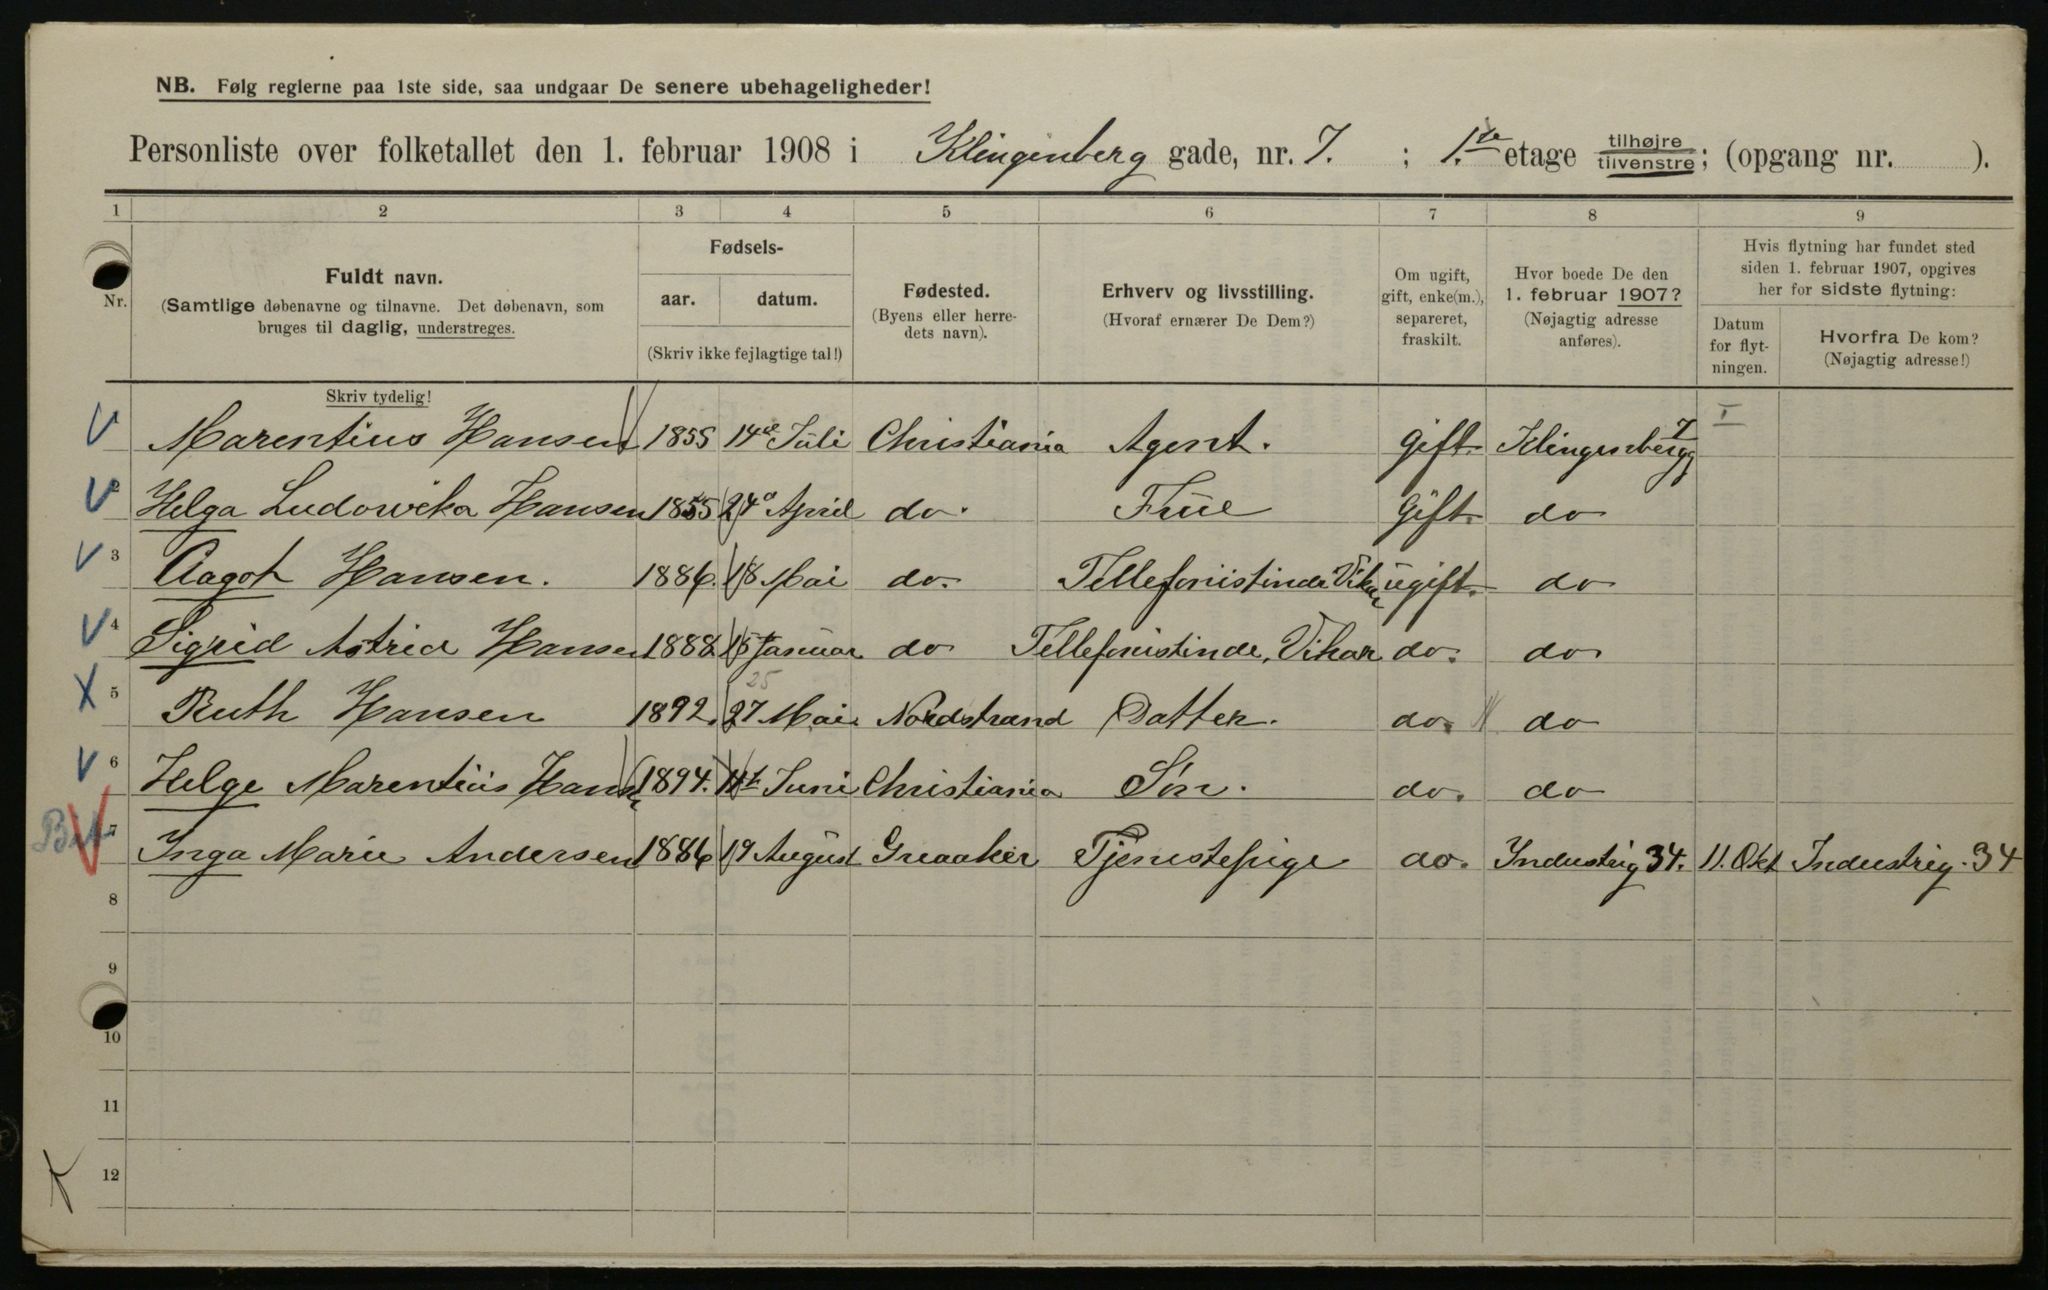 NB. Følg reglerne paa 1ste side, saa undgaar De senere ubehageligheder!
Personliste over folketallet den 1. februar 1908 i Klingenberg gade, nr. 7. ; 1.ste etage tilhøjre tilvenstre; (opgang nr. ).
1 2 3 4 5 6 7 8 9
Nr.
Fuldt navn.
(Samtlige døbenavne og tilnavne. Det døbenavn, som
bruges til daglig, understreges.
Skriv tydelig!
Fødsels-
aar. datum.
(Skriv ikke fejlagtige tal!)
Fødested.
(Byens eller herre-
dets navn).
Erhverv og livsstilling.
(Hvoraf ernærer De Dem?)
Om ugift,
gift, enke(m.),
separeret,
fraskilt.
Hvor boede De den
1. februar 1907?
(Nøjagtig adresse
anføres).
Hvis flytning har fundet sted
siden 1. februar 1907, opgives
her for sidste flytning:
Datum
for flyt-
ningen.
Hvorfra De kom?
(Nøjagtig adresse!)
Marentius Hansen 1855 14de Juli Christiania Agent. Gift. Klingenbergg 7
2 Helga Ludowika Hansen 1855 24 April do. Frue Gift. do
3 Aagot Hansen. 1886. 18 Mai do. Tellefonistinde Vikar ugift. do
4 Sigrid Astrid Hansen 1888 15 Januar do Tellefonistinde, Vikar do. do
25
5 Ruth Hansen 1892. 27 Mai Nordstrand Datter. do. do
6 Helge Marentius Hansen 1894. 11te Juni Christiania Søn. do. do
7 Inga Marie Andersen 1886 19 August Greaaker Tjenestepige do. Industrig 34. 11. Okt Industrig. 34
8
9
10
11
12